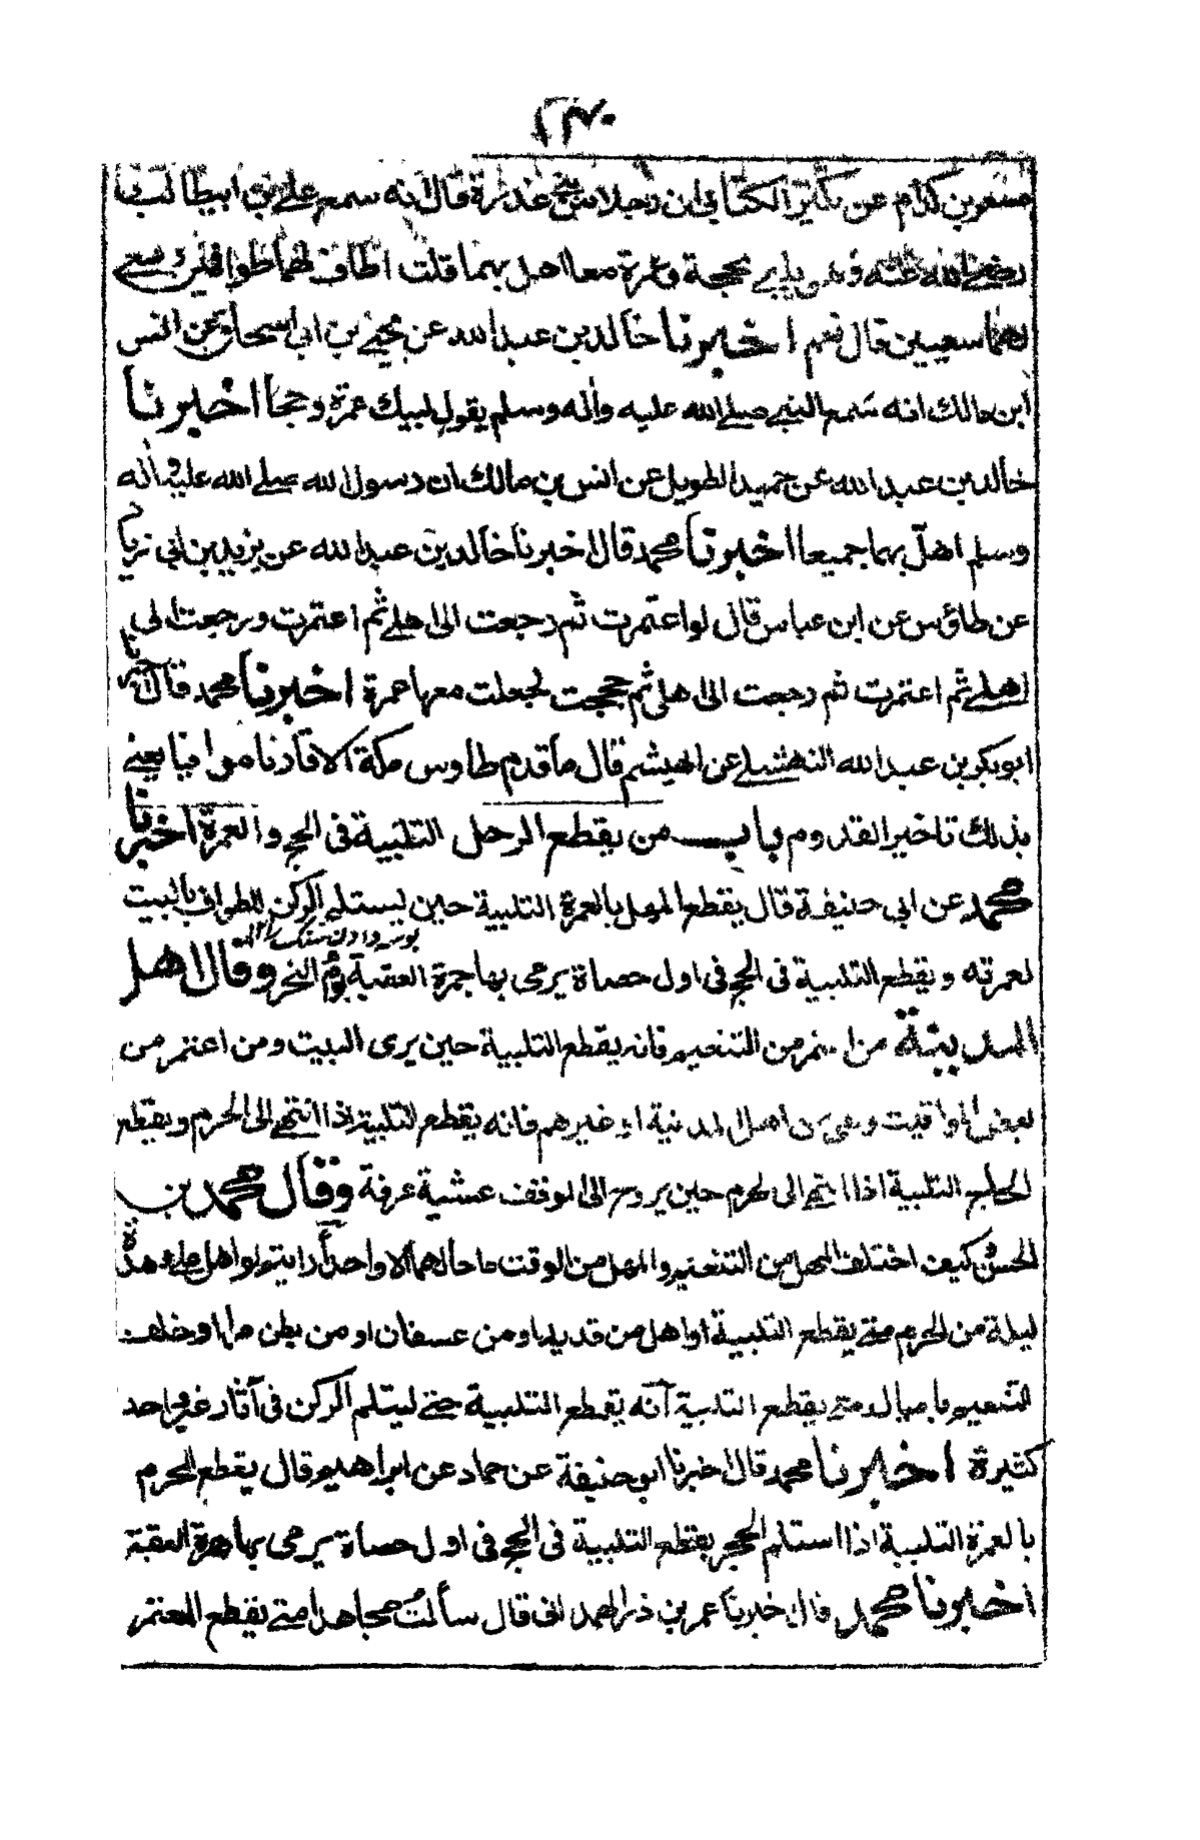 مسعر بن كدام عن بكير الكتاني ان رجلا من بني عذرة قال انه سمع علي بن ابيطالب
رضي الله عنه وهو يلبي بحجة وعمرة معا اهل بهما قلت اطاف لهما طوافين وسعى
لهما سعيين قال نعم اخبرنا خالد بن عبد الله عن يحيى بن ابي اسحاق عن انس
ابن مالك انه سمع النبي صلى الله عليه واله وسلم يقول لبيك عمرة وحجا اخبرنا
خالد بن عبد الله عن حميد الطويل عن انس بن مالك ان رسول الله صلى الله عليه واله
وسلم اهل بهما جميعا اخبرنا محمد قال اخبرنا خالد بن عبد الله عن يزيد بن ابي زياد
عن طاؤس عن ابن عباس قال لو اعتمرت ثم رجعت الى اهلي ثم اعتمرت ورجعت الى
اهلي ثم اعتمرت ثم رجعت الى اهلي ثم حججت لجعلت معها عمرة اخبرنا محمد قال اخبرنا
ابو بكر بن عبد الله النهشلي عن الهيثم قال ما قدم طاوس مكة الا قارنا موافيا يعني
بذلك تاخير القدوم باب من يقطع الرجل التلبية في الحج والعمرة اخبرنا
محمد عن ابي حنيفة قال يقطع المهل بالعمرة التلبية حين ليستلم الركن للطواف بالبيت
بوسه دادن سنك را
لعمرته ويقطع التلبية في الحج في اول حصاة يرمي بها جمرة العقبة يوم النحر وقال اهل
المدينة من اعتمر من التنعيم فانه يقطع التلبية حين يرى البيت ومن اعتمر من
بعض المواقيت وهو من اهل المدينة او غيرهم فانه يقطع التلبية اذا انتهى الى الحرم ويقطع
الحاج التلبية اذا انتهى الى الحرم حين يروح الى الموقف عشية عرفة وقال محمد بن
الحسن كيف اختلف المهل من التنعيم والمهل من الوقت ما حالهما الا واحد أرايتم لو اهل على هذه
ليلة من الحرم متى يقطع التلبية او اهل من قديد او من عسفان او من بطن مر او خلف
التنعيم باميال متى يقطع التلبية انه يقطع التلبية حتى ليتلم الركن في آثار غير واحد
كثيرة اخبرنا محمد قال اخبرنا ابو حنيفة عن حماد عن ابراهيم قال يقطع المحرم
بالعمرة التلبية اذا استلم الحجر يقطع التلبية في الحج في اول حصاة يرمي بها جمرة العقبة
اخبرنا محمد قال اخبرنا عمر بن ذر الهمداني قال سألت مجاهدا متى يقطع المعتمر